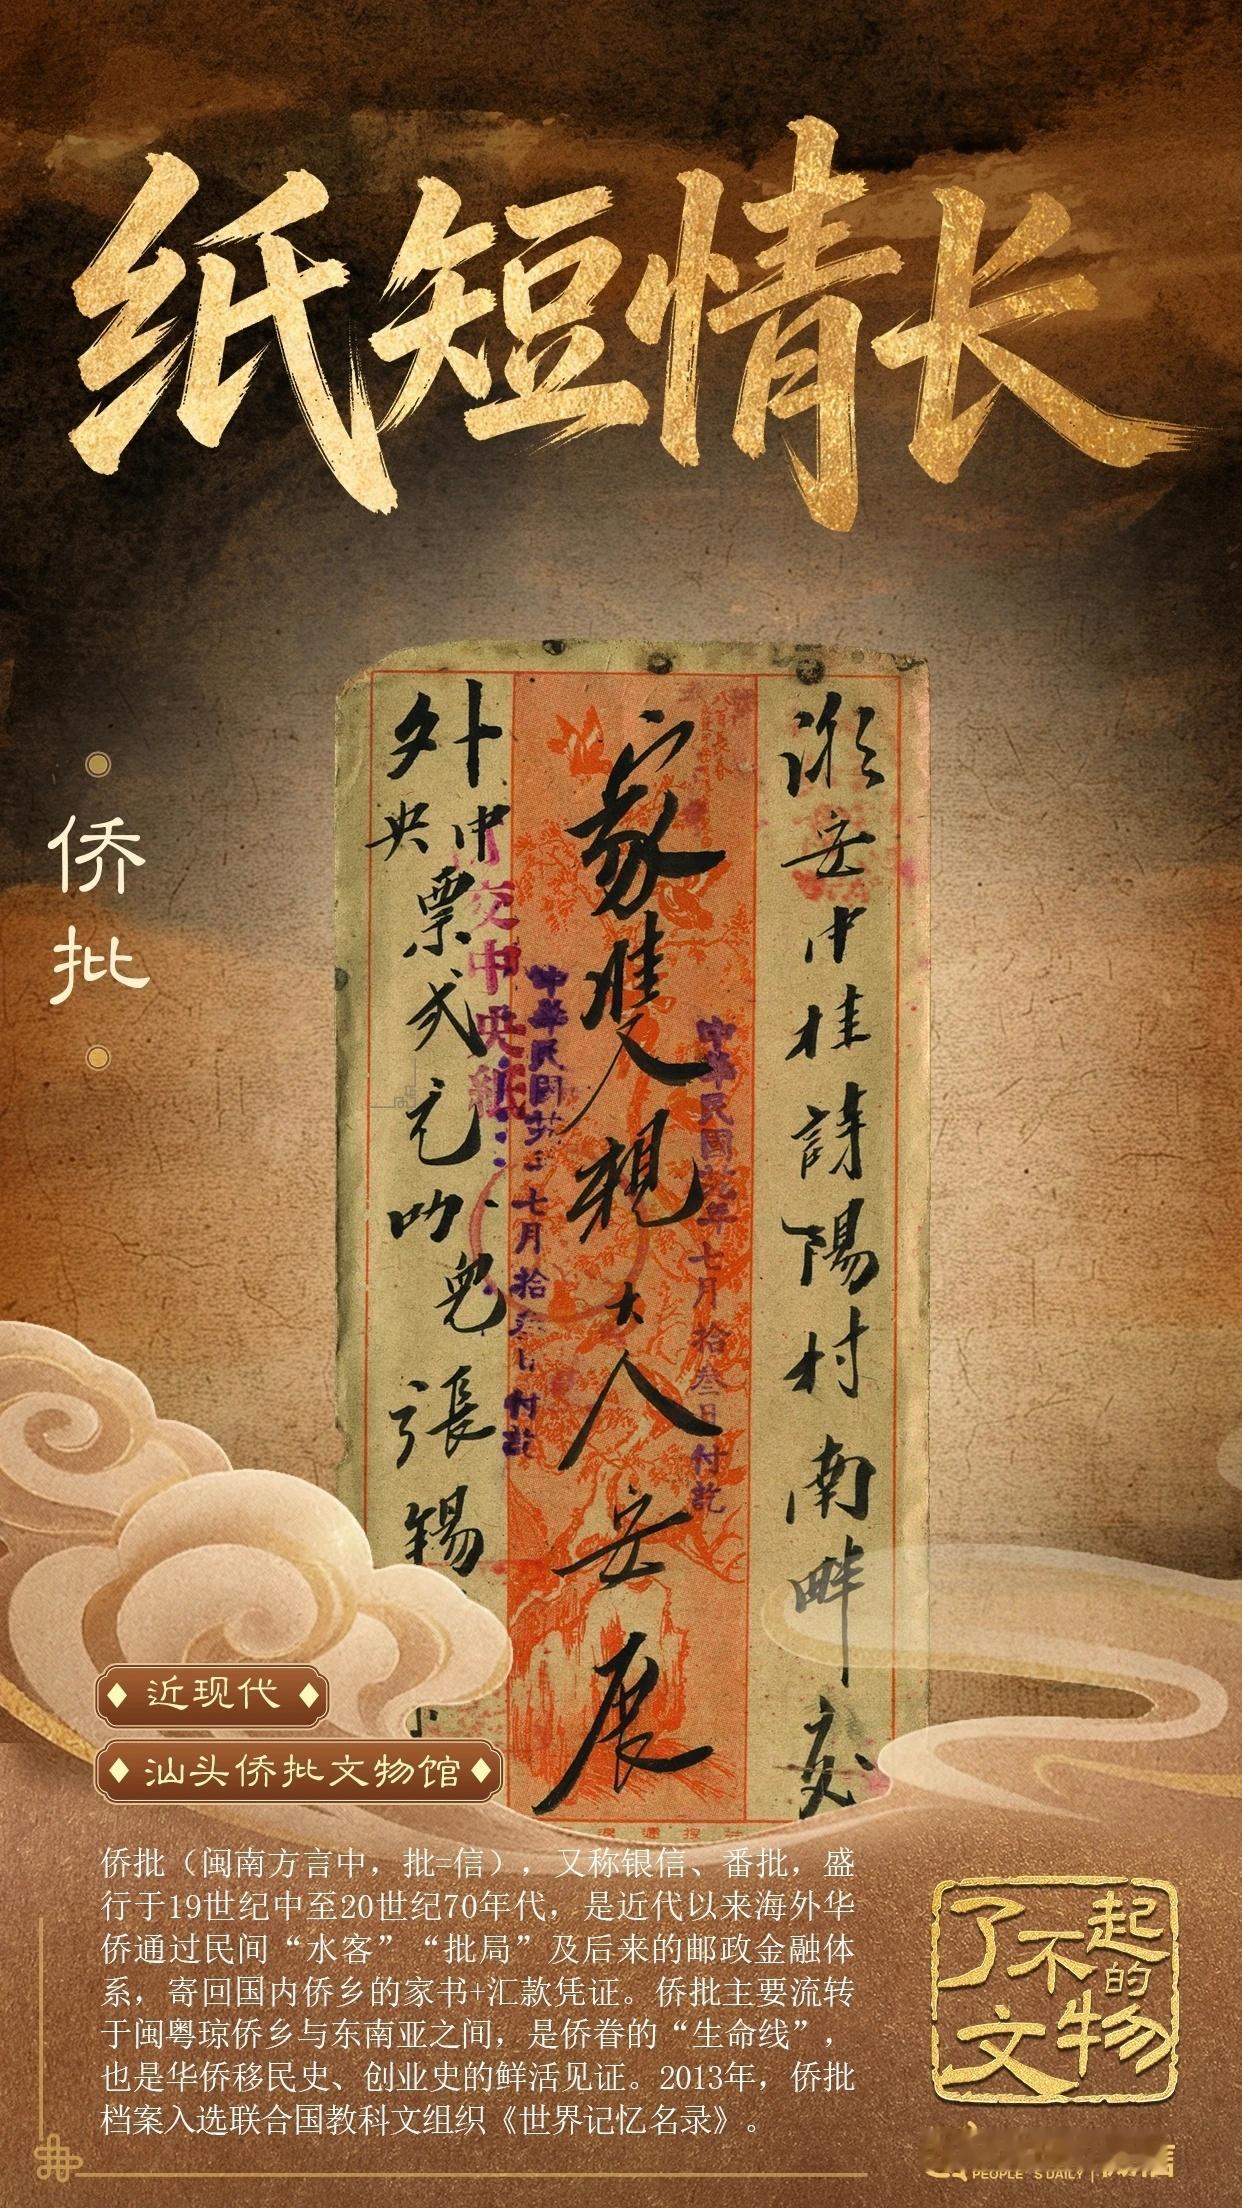 纸短情长
侨批
安中桂詩陽村南畔交
家雙親大人安展
外中央票弍元叻兒張錫
交中央紙
中華民國
七月拾叁日付訖
中華民國
年七月拾叁日付訖
近现代
汕头侨批文物馆
侨批（闽南方言中，批=信），又称银信、番批，盛
行于19世纪中至20世纪70年代，是近代以来海外华
侨通过民间“水客”“批局”及后来的邮政金融体
系，寄回国内侨乡的家书+汇款凭证。侨批主要流转
于闽粤琼侨乡与东南亚之间，是侨眷的“生命线”，
也是华侨移民史、创业史的鲜活见证。2013年，侨批
档案入选联合国教科文组织《世界记忆名录》。
了不起的文物
PEOPLE'S DAILY